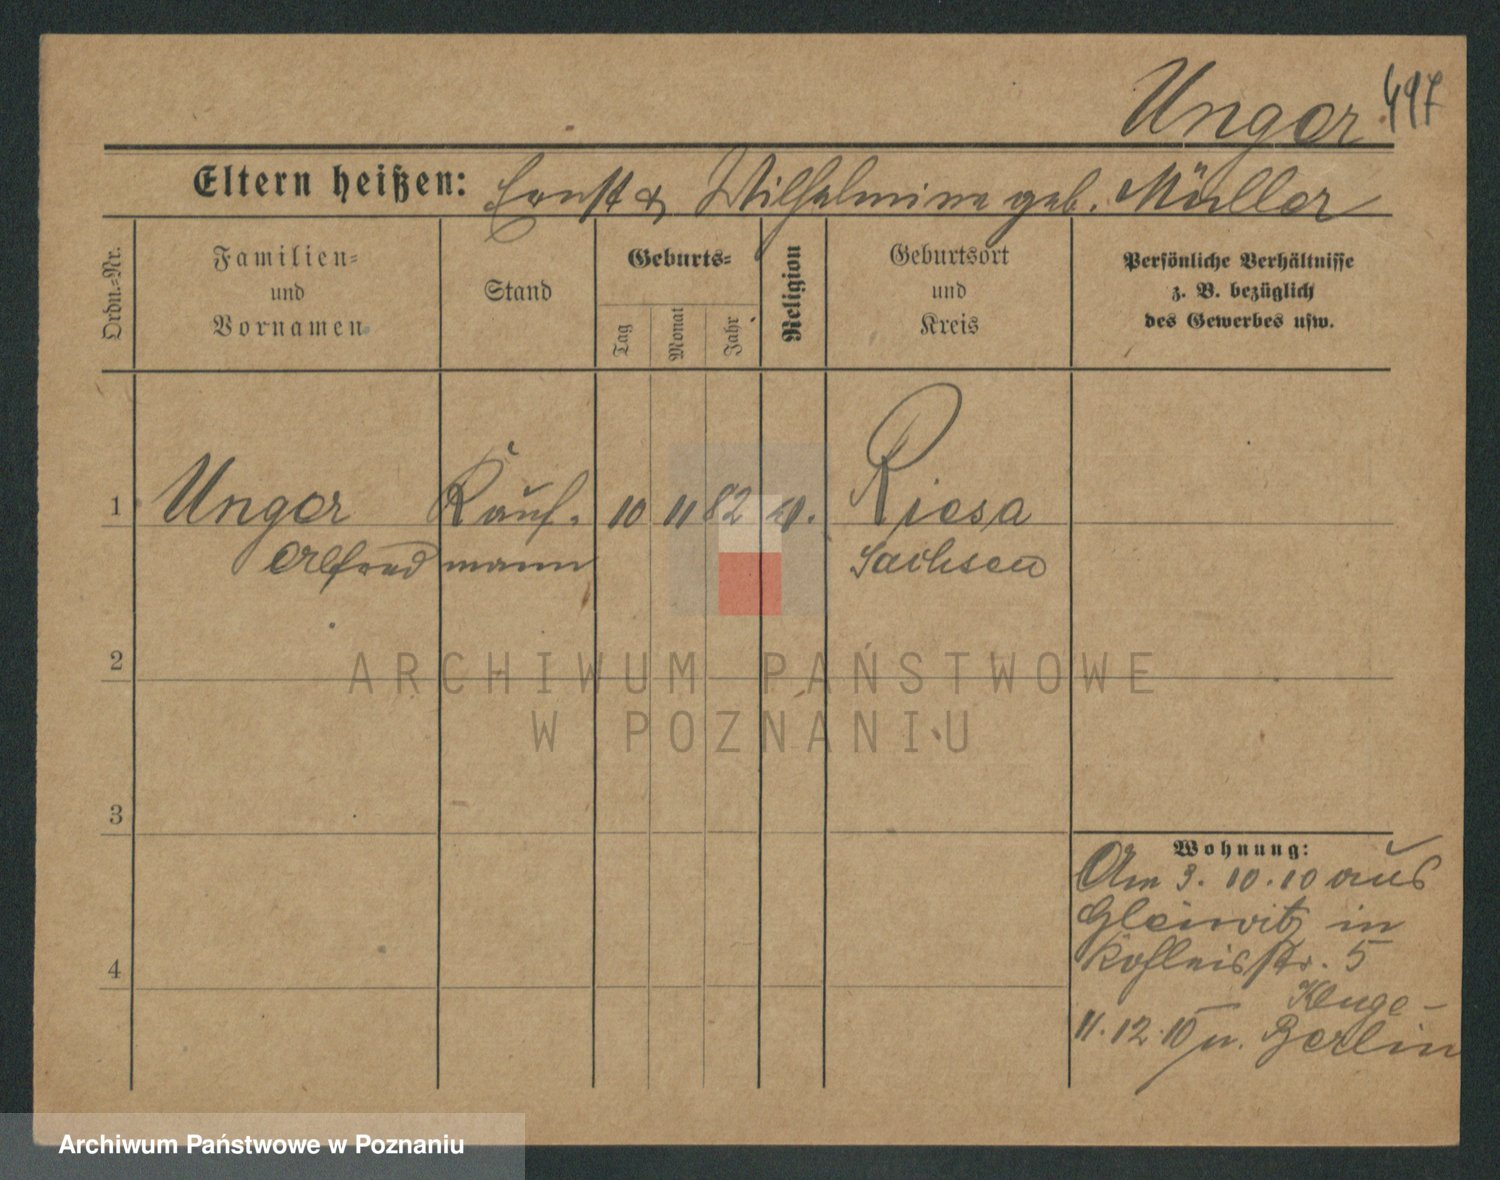 Unger 497
Eltern heißen: Ernst & Wilhelmine geb. Müller
Ordn.-Nr.
Familien-
und
Vornamen
Stand
Geburts-
Tag
Monat
Jahr
Religion
Geburtsort
und
Kreis
Persönliche Verhältnisse
z. B. bezüglich
des Gewerbes usw.
1 Unger Kauf- 10 11 82 Riesa
Alfred mann Sachsen
2
3
4
Wohnung:
Am 3.10.10 aus
Gleiwitz in
str. 5
Kluge-
11.12.10 n. Berlin
ARCHIWUM PAŃSTWOWE
W POZNANIU
Archiwum Państwowe w Poznaniu